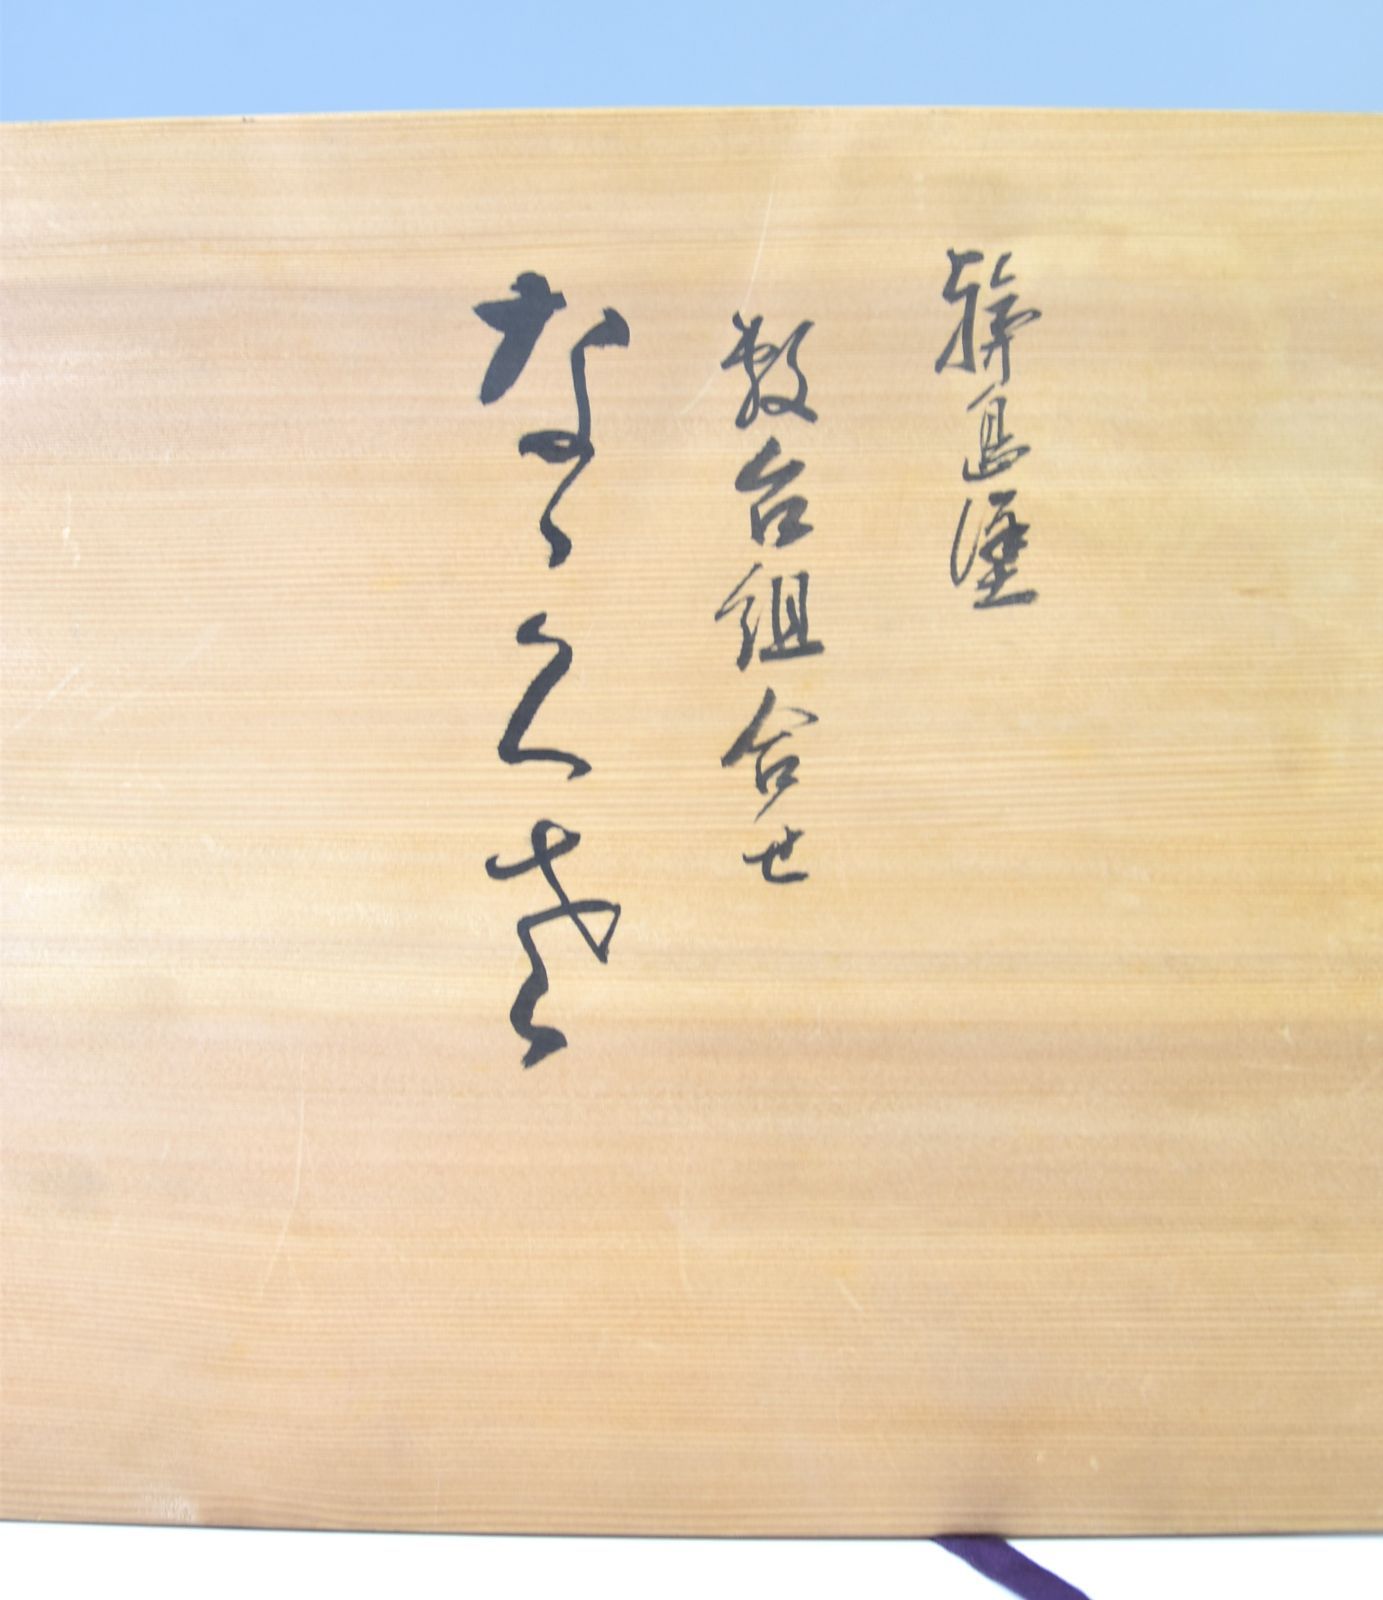 輪島塗
敷台組合せ
なゝくさ